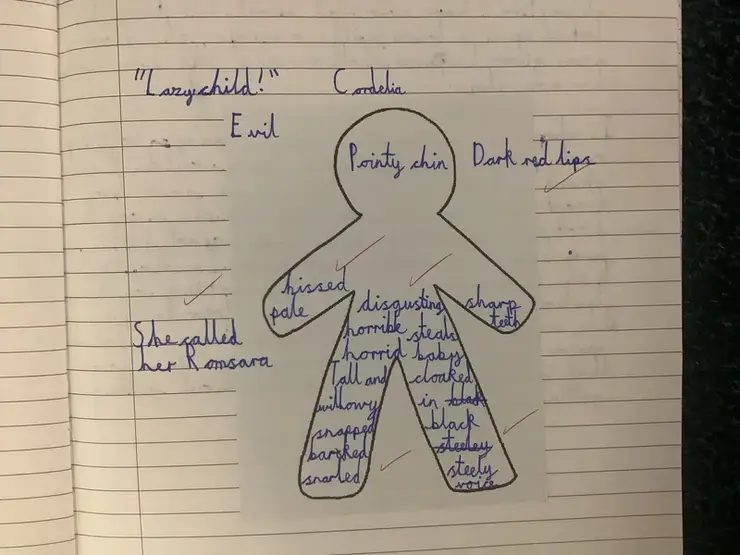 "Lazy child!" Cordelia
Evil
Pointy chin Dark red lips
hissed
pale
sharp
teeth
She called
her Romsara
disgusting
horrible steals
horrid baby
Tall and cloaked
willowy in blak
snapped black
barcked steeley
snarled steely
voice